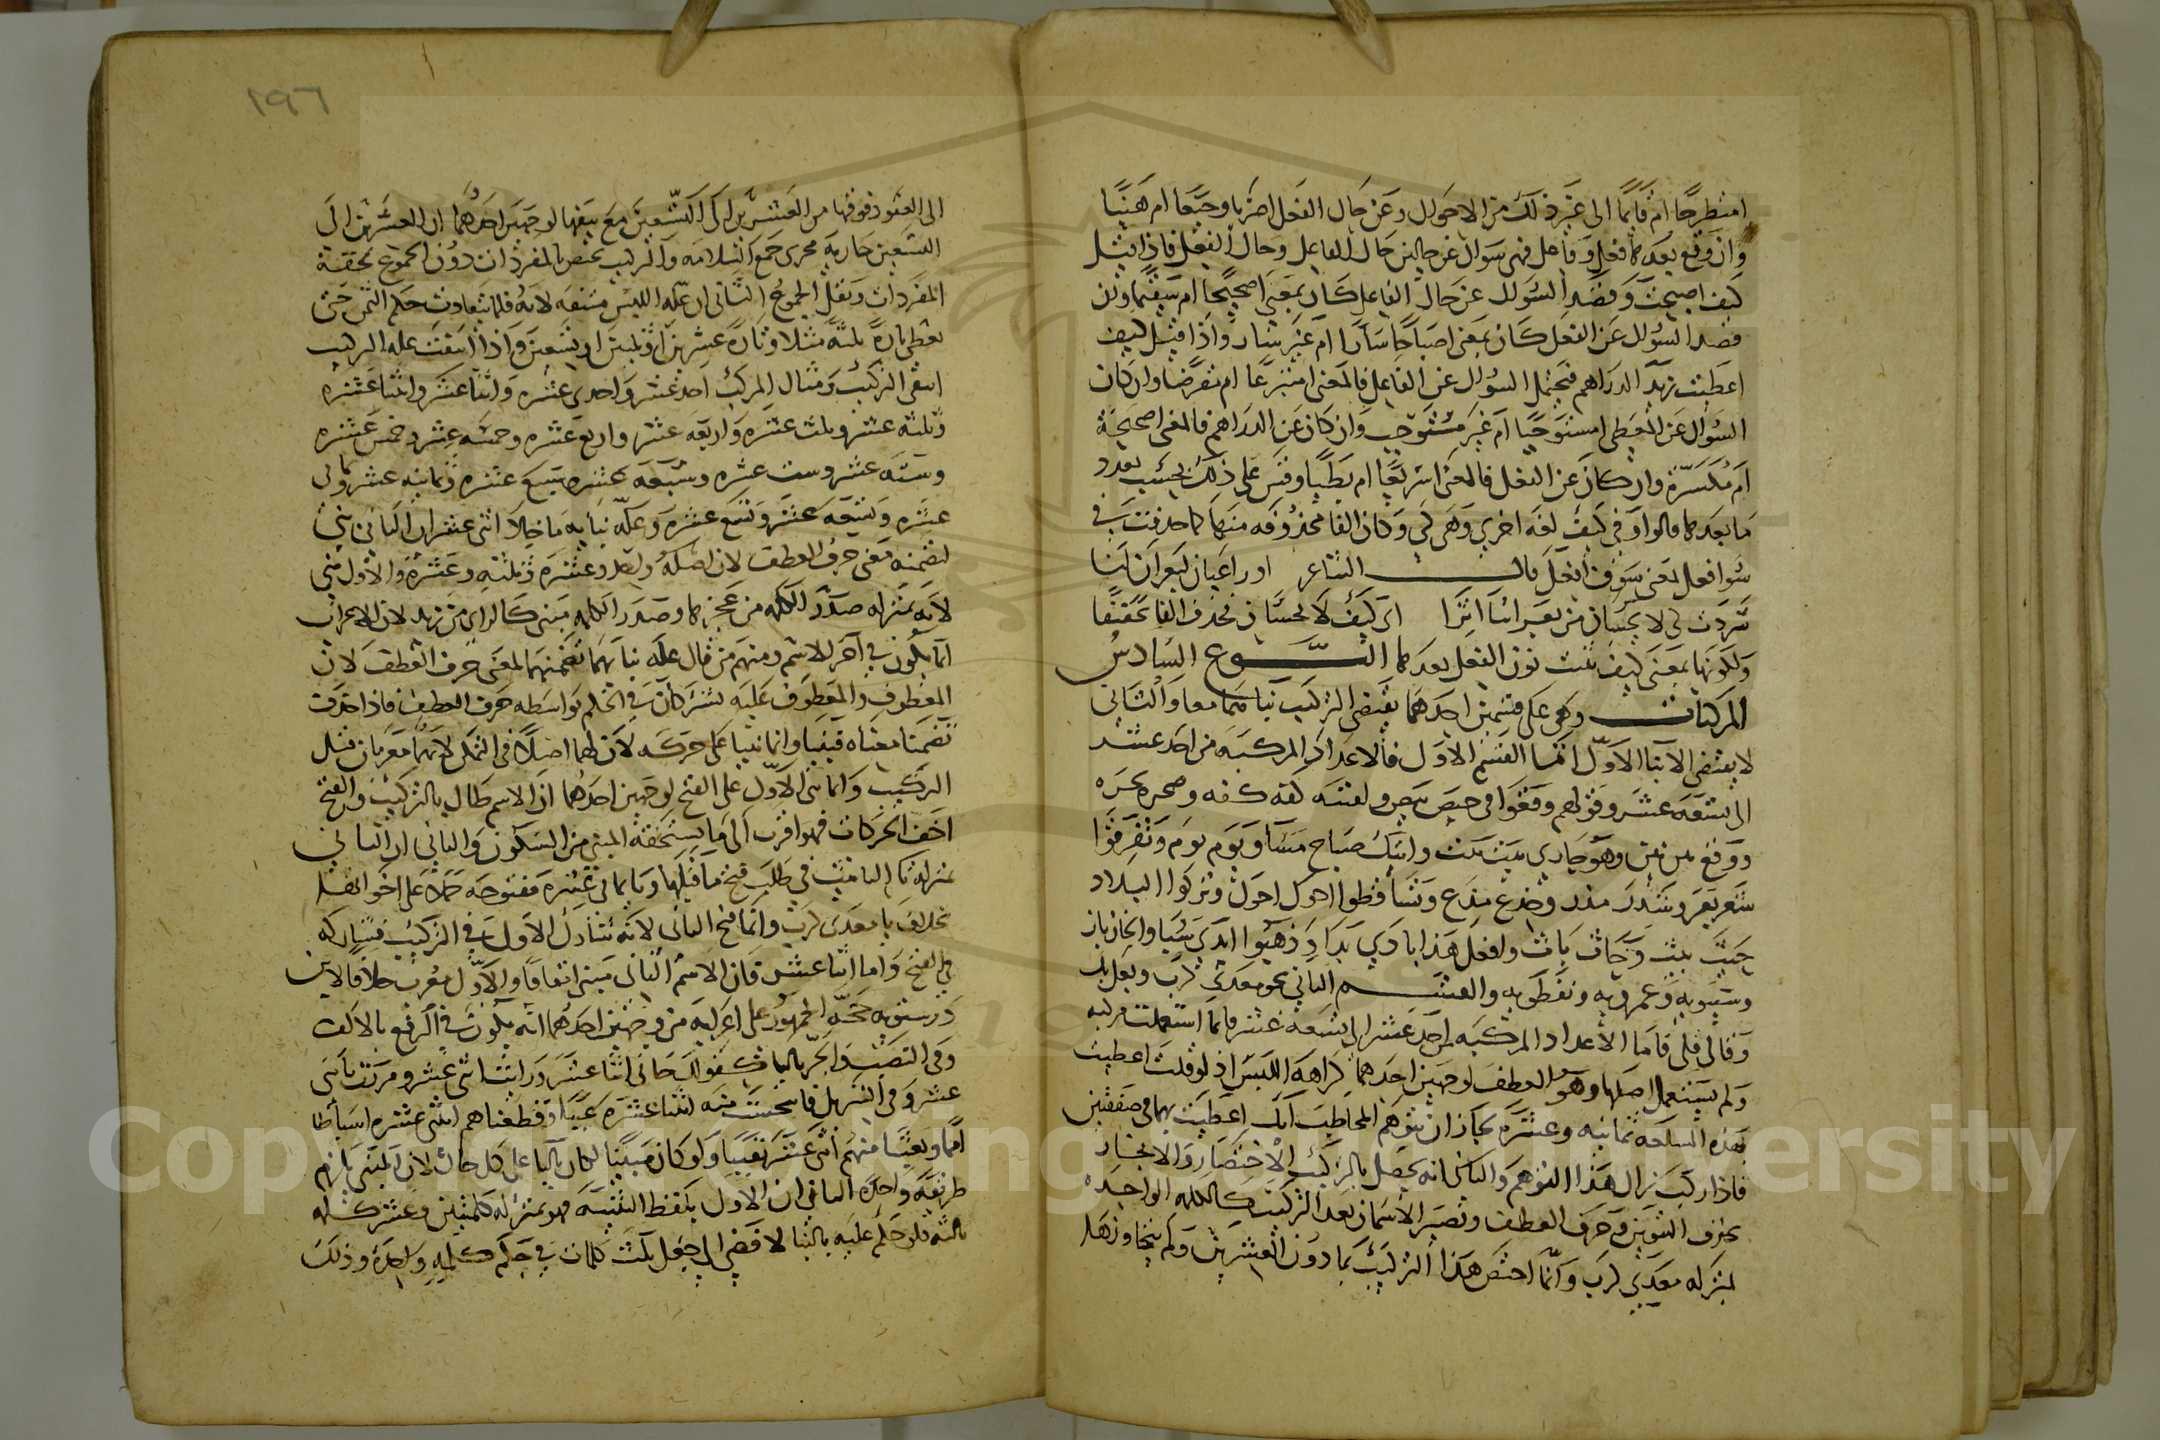 امنطرحًا ام قايمًا الى غير ذلك من الاحوال وعن حال الفعل اضربا وجيعا ام هينا
وان وقع بعدها فعل وفاعل فهى سوال عن حالين حال الفاعل وحال الفعل فاذا قيل
كيف اصبحت وقصد السوال عن حال الفاعل كان بمعنى اصحيحًا ام سقيمًا وان
قصد السوال عن الفعل كان بمعنى اصباحا سارا ام غير سار واذا قيل كيف
اعطيت زيدًا الدراهم فيحتمل السوال عن الفاعل فالمعنى امتبرعا ام مقرضا وان كان
السوال عن المعطى امستوجبا ام غير مستوجب وان كان عن الدراهم فالمعنى اصحيحة
ام مكسرة وان كان عن الفعل فالمعنى اسريعًا ام بطيًا وقس على ذلك بحسب تعدد
ما بعدها قالوا وفى كيف لغه اخرى وهى كى وكان الفا محذوفه منها كما حذفت فى
سوا فعل بمعنى سوف افعل قال الشاعر او راعيان لبعران لنا
شردت كى لا يحسان من بعراننا اثرا اى كيف لا يحسان فحذف الفا تخفيفا
ولكونها بمعنى كيف ثبتت نون الفعل بعدها النوع السادس
المركبات وهى على قسمين احدهما يقتضى التركيب بناهما معا والثانى
لا يقتضى الا بنا الاول اما القسم الاول فالاعداد المركبه من احد عشر
الى تسعه عشر وقولهم وقعوا فى حيص بيص ولقيته كفه كفه وصحره بحره
ووقع بين بين وهو جارى بيت بيت واتيتك صباح مسا ويوم يوم وتفرقوا
شغر بغر وشذر مذر وخذع مذع وتساقطوا اخول اخول وتركوا البلاد
حيث بيث وحاث باث وافعل هذا بادى بدا وذهبوا ايدى سبا والخازباز
وسيبويه وعمرويه ونفطويه والقسم الثانى نحو معدى كرب وبعلبك
وقالى قلى فاما الاعداد المركبه من احد عشر الى تسعه عشر فانما استعملت مركبه
ولم يستعمل اصلها وهو العطف لوجهين احدهما كراهه اللبس اذ لو قلت اعطيت
بهذه السلعه ثمانيه وعشره لجاز ان يتوهم المخاطب انك اعطيت بهما فى صفقتين
فاذا ركبت زال هذا التوهم والثانى انه يحصل بالتركيب الاختصار والايجاز
بحذف التنوين وحرف العطف وتصير الاسمان بعد التركيب كالكلمه الواحده
بمنزله معدى كرب وانما اختص هذا التركيب بما دون العشرين ولم يتجاوزها
١٩٦
الى العقود فوقها من العشرين الى التسعين مع بيفها لوجهين احدهما ان العشرين الى
التسعين جاريه مجرى جمع السلامه والتركيب يختص بالمفردات دون الجموع لخفة
المفردات وثقل الجموع الثانى ان عله اللبس منتفيه لانه قلما يتفاوت حكم الثمن حتى
يعطى تارة ثلثه مثلا وتارة عشرين او ثلثين او تسعين واذا انتفت عله التركيب
انتفى التركيب ومثال المركب احد عشر واحدى عشره واثنا عشر واثنتا عشره
وثلثه عشر وثلث عشره واربعه عشر واربع عشره وخمسه عشر وخمس عشره
وسته عشر وست عشره وسبعه عشر وسبع عشره وثمانيه عشر وثمانى
عشره وتسعه عشر وتسع عشره وعله بنايه ما خلا اثنى عشر ان الثانى بنى
لتضمنه معنى حرف العطف لان اصله احد وعشره وثلثه وعشره والاول بنى
لانه بمنزله صدر الكلمه من عجزها وصدر الكلمه مبنى كالزاى من زيد لان الاعراب
انما يكون فى آخر الاسم ومنهم من قال عله بنايهما تضمنهما لمعنى حرف العطف لان
المعطوف والمعطوف عليه يشتركان فى الحكم بواسطه حرف العطف فاذا حذف
تضمنا معناه فبنيا وانما بنيا على حركه لان لهما اصلًا فى التمكن لانهما معربان قبل
التركيب وانما بنى الاول على الفتح لوجهين احدهما ان الاسم طال بالتركيب والفتح
اخف الحركات فهو اقرب الى ما يستحقه المبنى من السكون والثانى ان الثانى
بمنزله تا التانيث فى طلب فتح ما قبلها ويا ثمانى عشره مفتوحه حملًا على اخواتها
بخلاف يا معدى كرب وانما فتح الثانى لانه شارك الاول فى التركيب فشاركه
فى الفتح واما اثنا عشر فان الاسم الثانى مبنى اتفاقا والاول معرب خلافا لابن
درستويه حجه الجمهور على اعرابه من وجهين احدهما انه يكون فى الرفع بالالف
وفى النصب والجر باليا كقولك جانى اثنا عشر ورايت اثنى عشر ومررت باثنى
عشر وفى التنزيل فانبجست منه اثنتا عشره عينًا وقطعناهم اثنتى عشره اسباطا
امما وبعثنا منهم اثنى عشر نقيبًا ولو كان مبنيًا لكان باليا على كل حال لان المبنى يلزم
طريقه واحده الثانى ان الاول بلفظ التثنيه فهو بمنزله كلمتين وعشر كلمه
ثالثه فلو حكم عليه بالبنا لافضى الى جعل ثلث كلمات فى حكم كلمه واحده وذلك